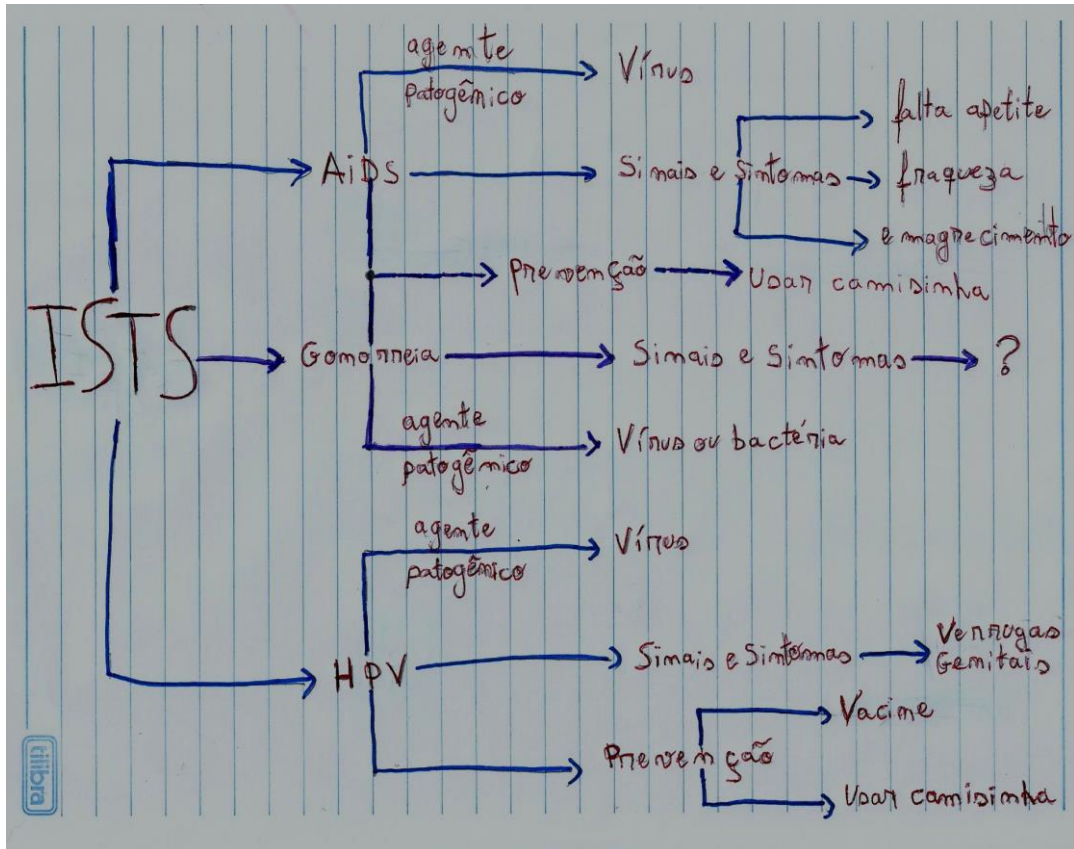 agente
patogênico
Vírus
falta apetite
AiDS
Sinais e Sintomas
fraqueza
emagrecimento
prevenção
Usar camisinha
ISTS
Gonorreia
Sinais e Sintomas
?
agente
patogênico
Vírus ou bactéria
agente
patogênico
Vírus
HPV
Sinais e Sintomas
Verrugas
Genitais
Prevenção
Vacine
Usar camisinha
tilibra